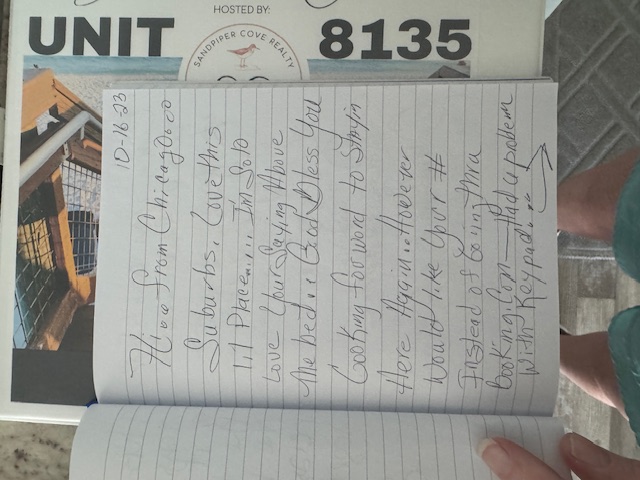 HOSTED BY:
UNIT 8135
SANDPIPER COVE REALTY
10-16-23
Hi.. from Chicago...
Suburbs. Love this
lil Place.... I'm Solo
Love Your Saying Above
the bed.. God Bless You
Looking forword to Stayin
Here Again.. However
Would like Your #
Instead of Going thru
Booking.com - Had a problem
With Keypad...